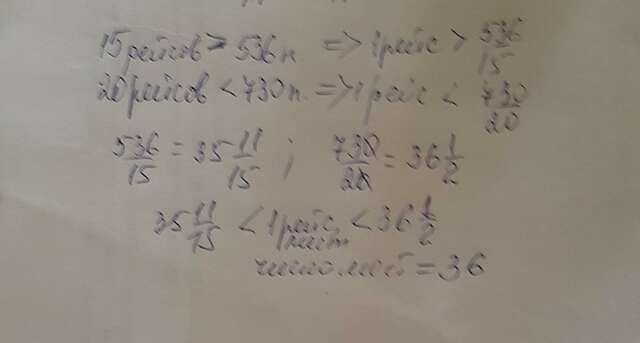 15 рейсов > 536 п. => 1 рейс > 536/15
20 рейсов < 730 п. => 1 рейс < 730/20
536/15 = 35 11/15 ; 730/20 = 36 1/2
35 11/15 < 1 рейс < 36 1/2
число мест = 36